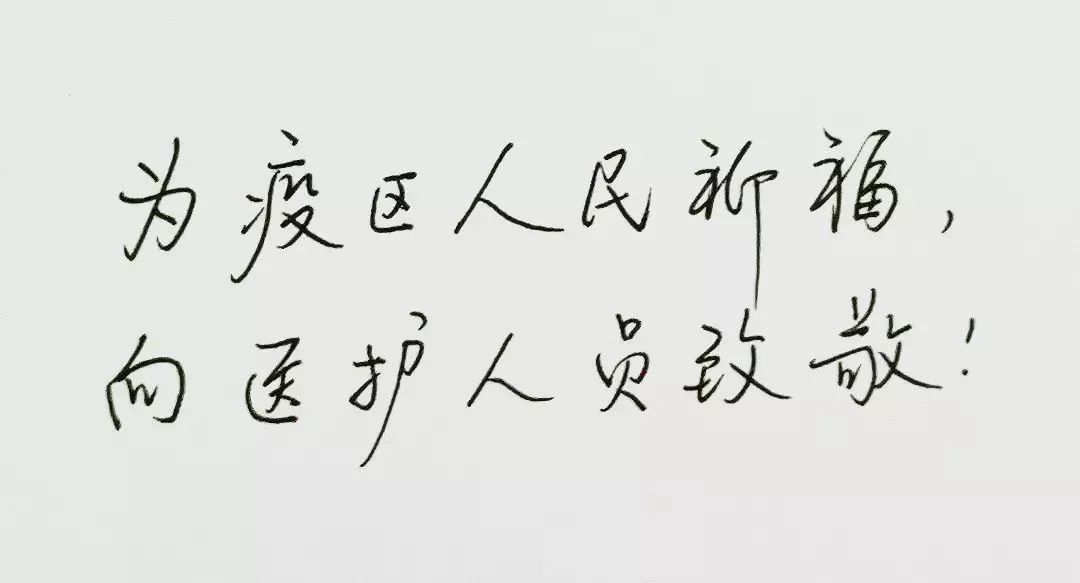 为疫区人民祈福,
向医护人员致敬!